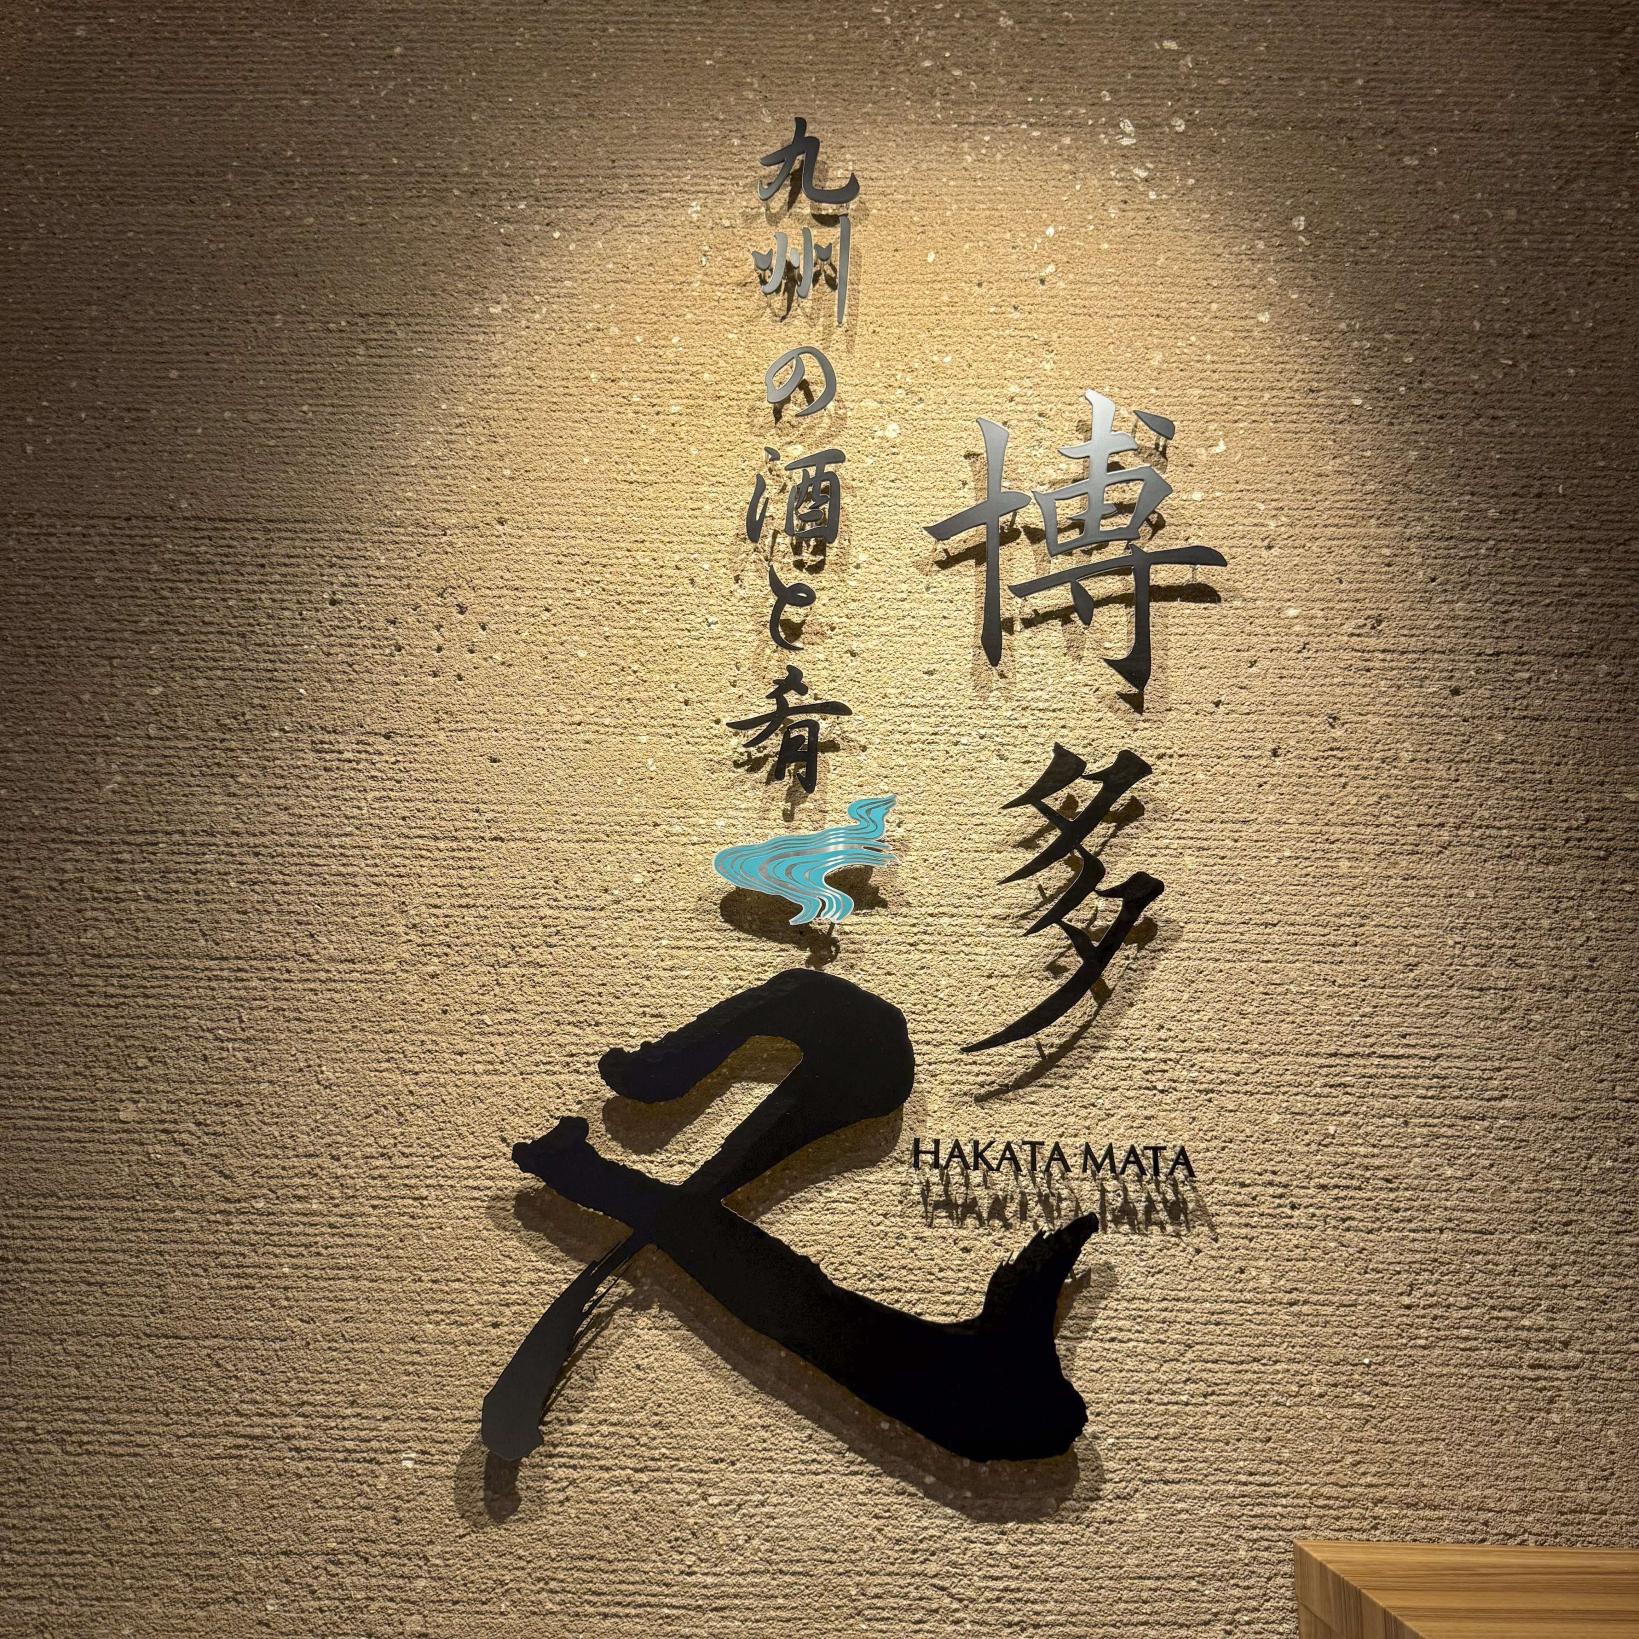 博多
九州の酒と肴
又
HAKATA MATA